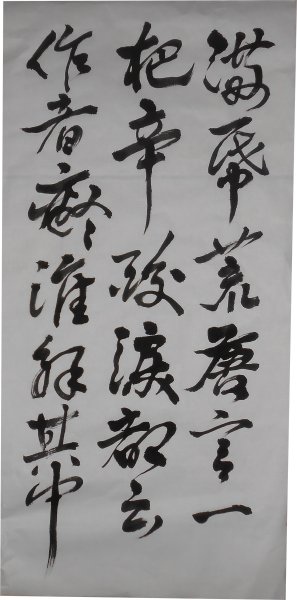 满帋荒唐言一
把辛酸淚都云
作者癡谁解其中